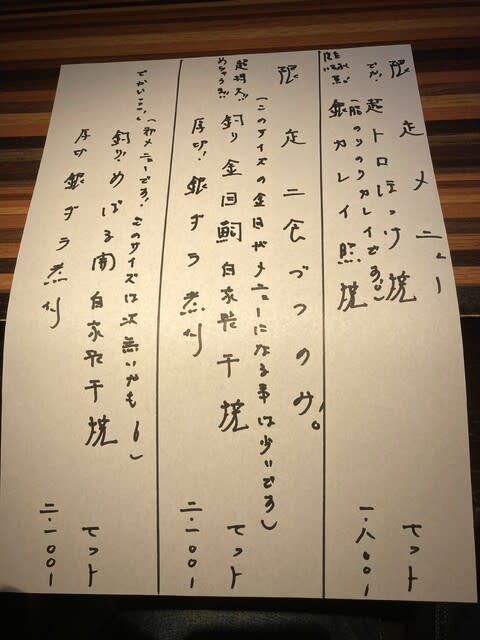 限定メニュー
でか! 超トロほっけ焼 セット
(脂のりのりカレイです!!)
銀カレイ照焼 一.八〇〇ー
限定二食づつのみ!。
(このサイズの金目がメニューになる事は少いです)
超特大!!
めちゃうま!!
釣り金目鯛自家製干焼 セット
厚切!銀ダラ煮付 二.一〇〇ー
(初メニューです!このサイズは次無いかもー)
でかいここ!
釣り!めばる開自家製干焼 セット
厚切銀ダラ煮付 二.一〇〇ー